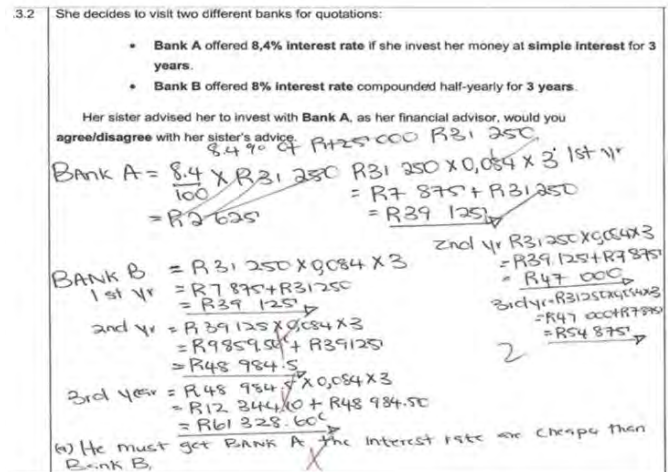 .3.2 She decides to visit two different banks for quotations:
• Bank A offered 8,4% interest rate if she invest her money at simple interest for 3
years.
• Bank B offered 8% interest rate compounded half-yearly for 3 years.
Her sister advised her to invest with Bank A, as her financial advisor, would you
agree/disagree with her sister's advice.
8.4% of R31 250
BANK A = 8.4/100 X R31 250
= R2 625
R31 250 X 0,084 X 3 1st yr
= R7 875 + R31 250
= R39 125
2nd yr R31250X0,084X3
= R39 125 + R7875
= R47 000
3rd yr = R31250X0,084X3
= R47 000 + R7875
= R54 875
2
BANK B = R31 250 X 0,084 X 3
1st yr = R7 875 + R31250
= R39 125
2nd yr = R39125 X 0,084 X 3
= R9859.50 + R39125
= R48 984.5
3rd year = R48 984.5 X 0,084 X 3
= R12 344,10 + R48 984.50
= R61 328.60
(a) He must get BANK A the interest rate are cheape then
Bank B,